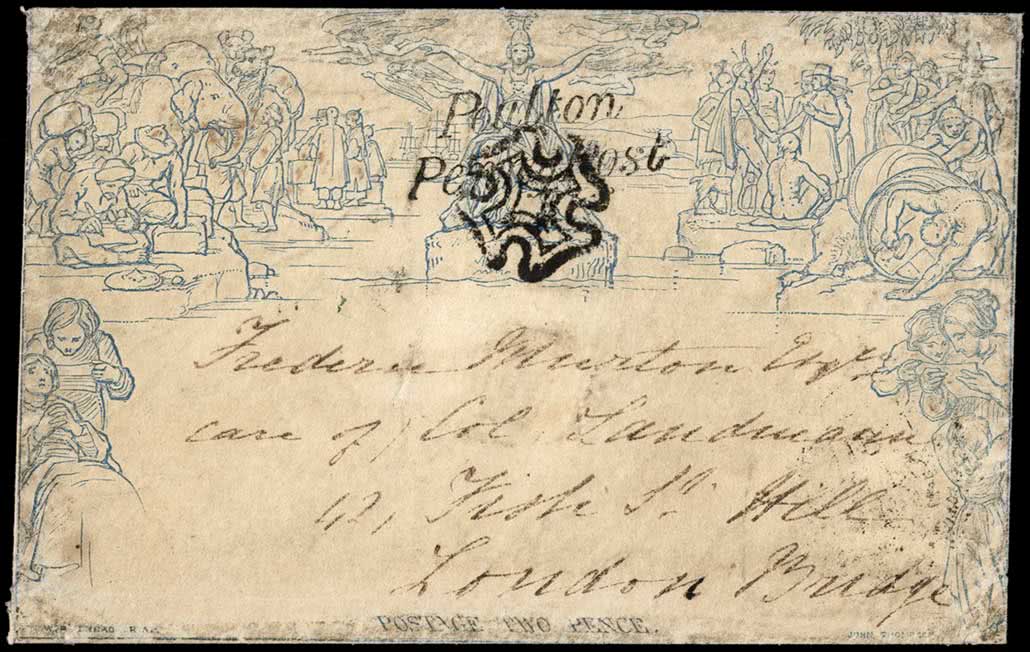 Poulton
Penny Post
Frederic Murton Esqr
care of Col Landmann
12, Fish St Hill
London Bridge
W. MULREADY R.A.
POSTAGE TWO PENCE.
JOHN THOMPSON